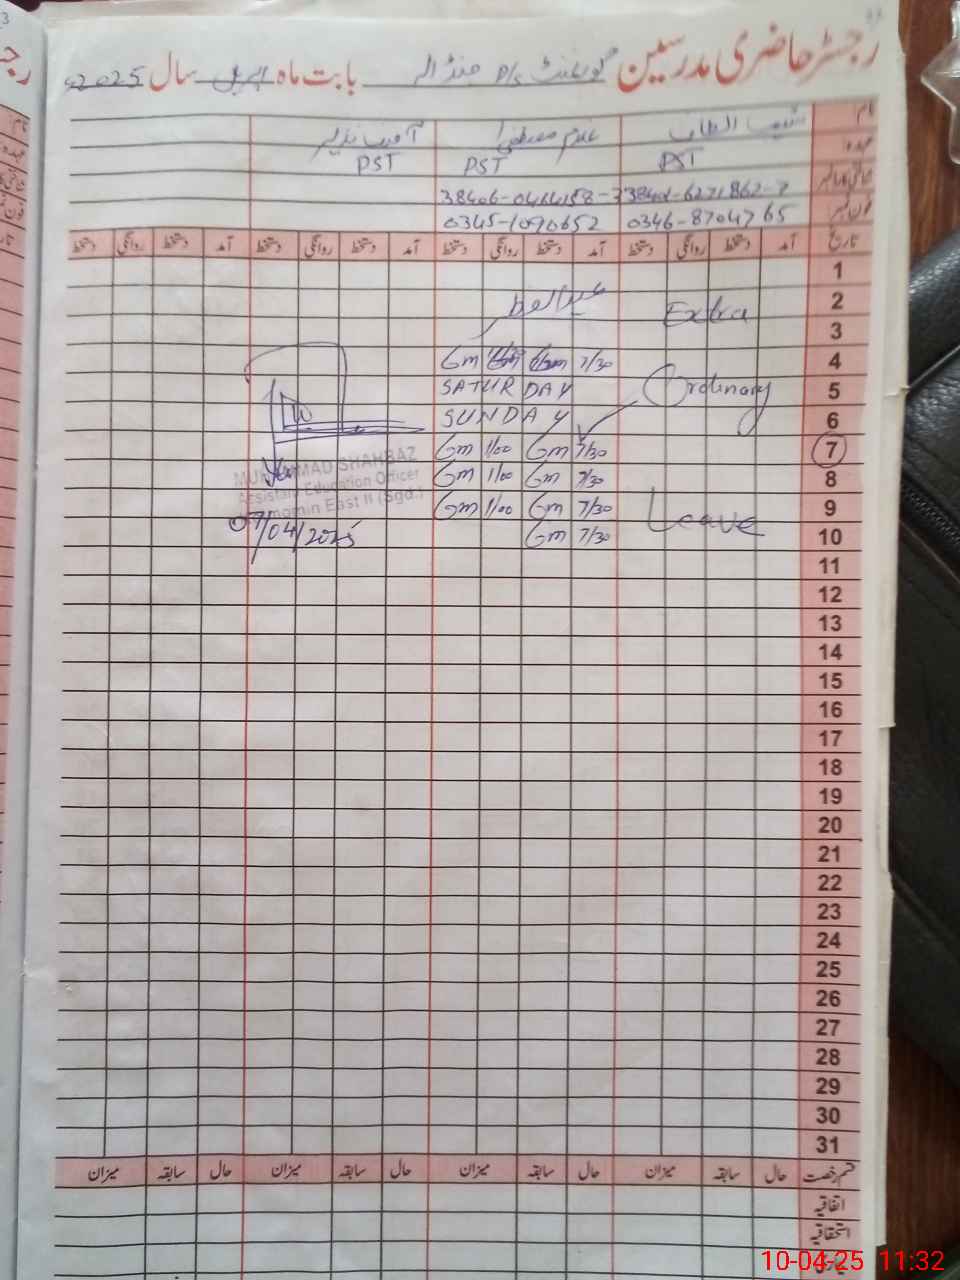 رجسٹر حاضری مدرسین گورنمنٹ P/s بابت ماہ اپریل سال 2025ء
نام
عہدہ PST PST PST
38406-0464158-3
فون نمبر 0346-8704765 0345-1090652
تاریخ آمد دستخط روانگی دستخط آمد دستخط روانگی دستخط آمد دستخط روانگی دستخط آمد دستخط روانگی دستخط
1
2 Extra
3
4 7/30 Gm Gm
5 SATURDAY Ordinary
6 SUNDAY
7 7/30 Gm 1/00 Gm
8 7/30 Gm 1/00 Gm
9 7/30 Gm 1/00 Gm Leave
10 7/30 Gm
MUHAMMAD SHAHBAZ
Assistant Education Officer
Momin East II (Sgd.)
09/04/2025
11
12
13
14
15
16
17
18
19
20
21
22
23
24
25
26
27
28
29
30
31
قسم رخصت حال سابقہ میزان حال سابقہ میزان حال سابقہ میزان حال سابقہ میزان
اتفاقیہ
استحقاقیہ
10-04-25 11:32